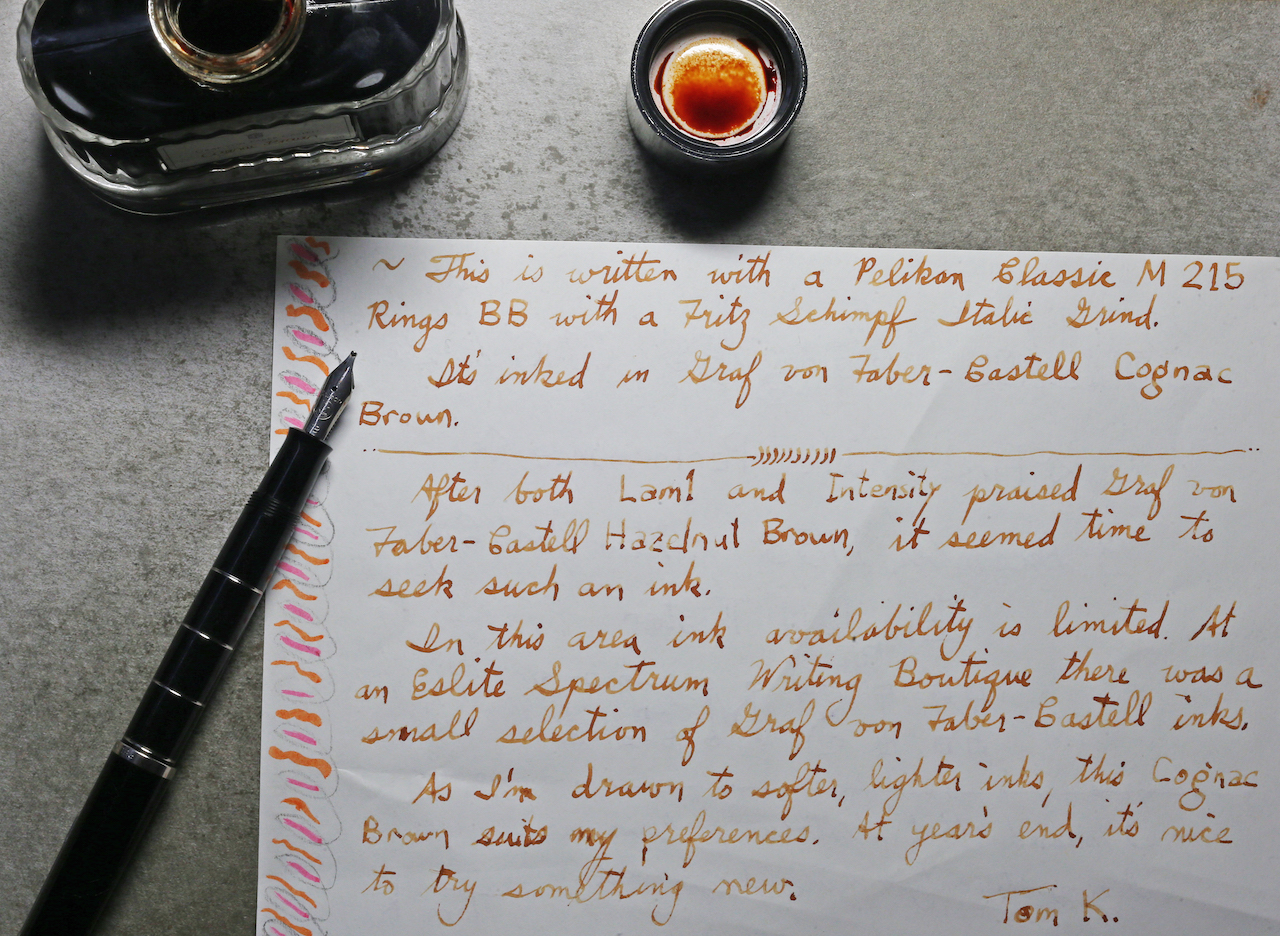 ~ This is written with a Pelikan Classic M 215
Rings BB with a Fritz Schimpf Italic Grind.
It's inked in Graf von Faber-Castell Cognac
Brown.
After both Lam1 and Intensity praised Graf von
Faber-Castell Hazelnut Brown, it seemed time to
seek such an ink.
In this area ink availability is limited. At
an Eslite Spectrum Writing Boutique there was a
small selection of Graf von Faber-Castell inks.
As I'm drawn to softer, lighter inks, this Cognac
Brown suits my preferences. At year's end, it's nice
to try something new.
Tom K.